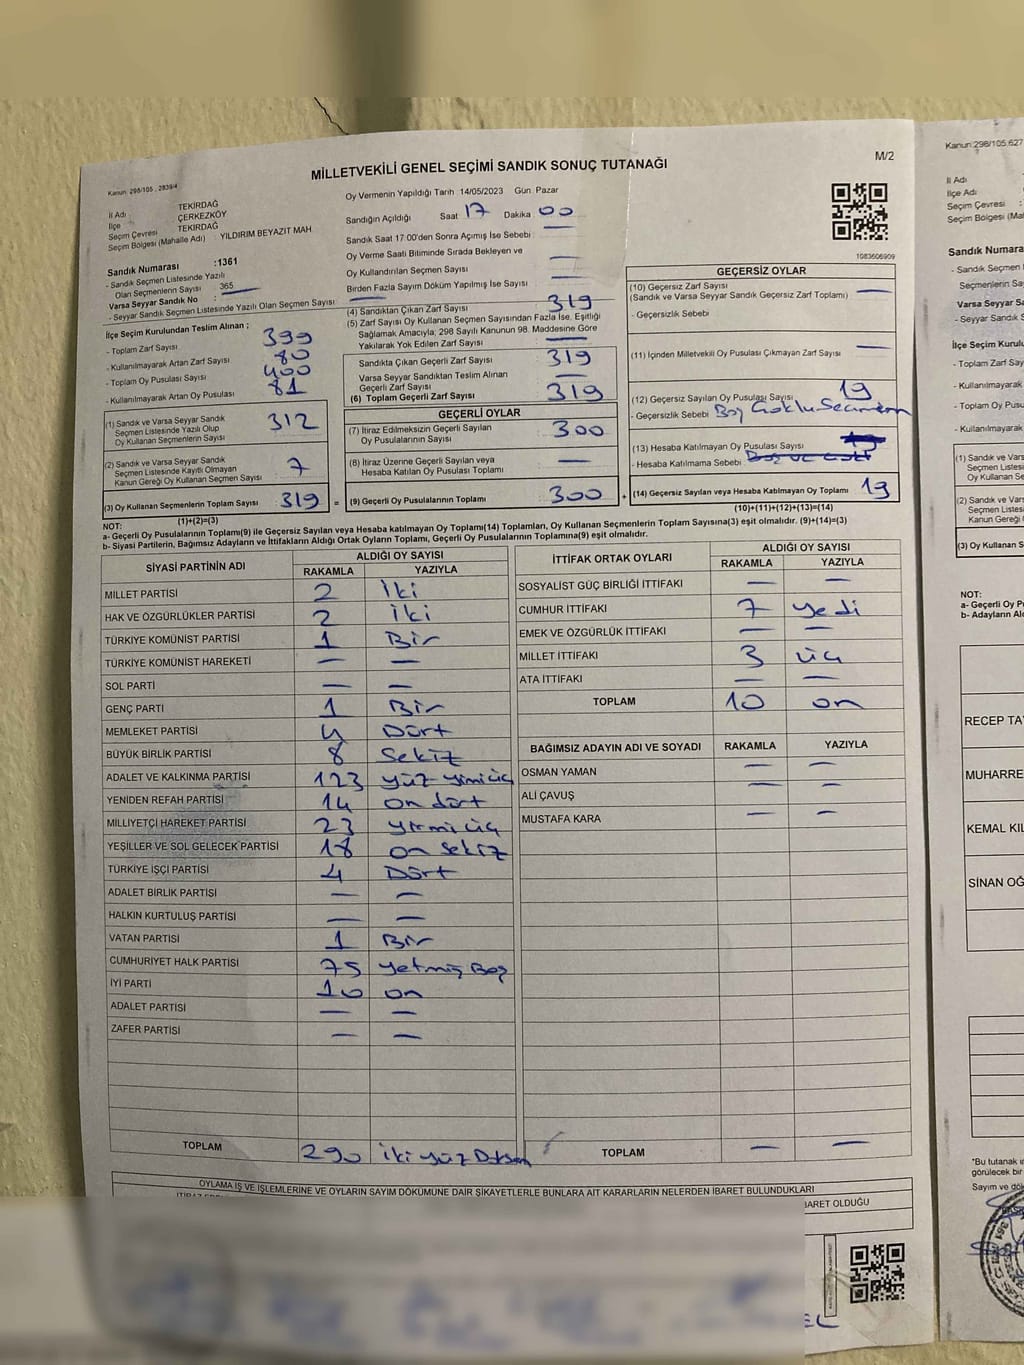 Kanun: 298/105 , 2839/4
MİLLETVEKİLİ GENEL SEÇİMİ SANDIK SONUÇ TUTANAĞI
M/2
İl Adı TEKİRDAĞ
İlçe ÇERKEZKÖY
Seçim Çevresi TEKİRDAĞ
Seçim Bölgesi (Mahalle Adı) : YILDIRIM BEYAZIT MAH
Sandık Numarası :1361
- Sandık Seçmen Listesinde Yazılı
Olan Seçmenlerin Sayısı 365
Varsa Seyyar Sandık No :
- Seyyar Sandık Seçmen Listesinde Yazılı Olan Seçmen Sayısı
İlçe Seçim Kurulundan Teslim Alınan ;
- Toplam Zarf Sayısı 399
- Kullanılmayarak Artan Zarf Sayısı 80
- Toplam Oy Pusulası Sayısı 400
- Kullanılmayarak Artan Oy Pusulası 81
(1) Sandık ve Varsa Seyyar Sandık
Seçmen Listesinde Yazılı Olup
Oy Kullanan Seçmenlerin Sayısı 312
(2) Sandık ve Varsa Seyyar Sandık
Seçmen Listesinde Kayıtlı Olmayan
Kanun Gereği Oy Kullanan Seçmen Sayısı 7
(3) Oy Kullanan Seçmenlerin Toplam Sayısı 319 =
(1)+(2)=(3)
Oy Vermenin Yapıldığı Tarih 14/05/2023 Gün: Pazar
Sandığın Açıldığı Saat 17 Dakika 00
Sandık Saat 17:00'den Sonra Açımış İse Sebebi : —
Oy Verme Saati Bitiminde Sırada Bekleyen ve
Oy Kullandırılan Seçmen Sayısı —
Birden Fazla Sayım Döküm Yapılmış İse Sayısı —
(4) Sandıktan Çıkan Zarf Sayısı 319
(5) Zarf Sayısı Oy Kullanan Seçmen Sayısından Fazla İse, Eşitliği
Sağlamak Amacıyla, 298 Sayılı Kanunun 98. Maddesine Göre
Yakılarak Yok Edilen Zarf Sayısı —
Sandıkta Çıkan Geçerli Zarf Sayısı 319
Varsa Seyyar Sandıktan Teslim Alınan
Geçerli Zarf Sayısı —
(6) Toplam Geçerli Zarf Sayısı 319
GEÇERLİ OYLAR
(7) İtiraz Edilmeksizin Geçerli Sayılan
Oy Pusulalarının Sayısı 300
(8) İtiraz Üzerine Geçerli Sayılan veya
Hesaba Katılan Oy Pusulası Toplamı —
(9) Geçerli Oy Pusulalarının Toplamı 300 +
1083606909
GEÇERSİZ OYLAR
(10) Geçersiz Zarf Sayısı —
(Sandık ve Varsa Seyyar Sandık Geçersiz Zarf Toplamı)
- Geçersizlik Sebebi
(11) İçinden Milletvekili Oy Pusulası Çıkmayan Zarf Sayısı —
(12) Geçersiz Sayılan Oy Pusulası Sayısı 19
- Geçersizlik Sebebi Boş
(13) Hesaba Katılmayan Oy Pusulası Sayısı
- Hesaba Katılmama Sebebi
(14) Geçersiz Sayılan veya Hesaba Katılmayan Oy Toplamı 19
(10)+(11)+(12)+(13)=(14)
NOT:
a- Geçerli Oy Pusulalarının Toplamı(9) ile Geçersiz Sayılan veya Hesaba katılmayan Oy Toplamı(14) Toplamları, Oy Kullanan Seçmenlerin Toplam Sayısına(3) eşit olmalıdır. (9)+(14)=(3)
b- Siyasi Partilerin, Bağımsız Adayların ve İttifakların Aldığı Ortak Oyların Toplamı, Geçerli Oy Pusulalarının Toplamına(9) eşit olmalıdır.
SİYASİ PARTİNİN ADI ALDIĞI OY SAYISI
RAKAMLA YAZIYLA
MİLLET PARTİSİ 2 iki
HAK VE ÖZGÜRLÜKLER PARTİSİ 2 iki
TÜRKİYE KOMÜNİST PARTİSİ 1 Bir
TÜRKİYE KOMÜNİST HAREKETİ — —
SOL PARTİ — —
GENÇ PARTİ 1 Bir
MEMLEKET PARTİSİ 4 Dört
BÜYÜK BİRLİK PARTİSİ 8 Sekiz
ADALET VE KALKINMA PARTİSİ 123 yüz yirmi üç
YENİDEN REFAH PARTİSİ 14 on dört
MİLLİYETÇİ HAREKET PARTİSİ 23 yirmi üç
YEŞİLLER VE SOL GELECEK PARTİSİ 18 on sekiz
TÜRKİYE İŞÇİ PARTİSİ 4 Dört
ADALET BİRLİK PARTİSİ — —
HALKIN KURTULUŞ PARTİSİ — —
VATAN PARTİSİ 1 Bir
CUMHURİYET HALK PARTİSİ 75 yetmiş Beş
İYİ PARTİ 10 on
ADALET PARTİSİ — —
ZAFER PARTİSİ — —
TOPLAM 290 iki yüz Doksan
İTTİFAK ORTAK OYLARI ALDIĞI OY SAYISI
RAKAMLA YAZIYLA
SOSYALİST GÜÇ BİRLİĞİ İTTİFAKI — —
CUMHUR İTTİFAKI 7 yedi
EMEK VE ÖZGÜRLÜK İTTİFAKI — —
MİLLET İTTİFAKI 3 üç
ATA İTTİFAKI — —
TOPLAM 10 on
BAĞIMSIZ ADAYIN ADI VE SOYADI RAKAMLA YAZIYLA
OSMAN YAMAN — —
ALİ ÇAVUŞ — —
MUSTAFA KARA — —
TOPLAM — —
OYLAMA İŞ VE İŞLEMLERİNE VE OYLARIN SAYIM DÖKÜMÜNE DAİR ŞİKAYETLERLE BUNLARA AİT KARARLARIN NELERDEN İBARET BULUNDUKLARI
BARET OLDUĞU
Kanun:298/105,627
İl Adı
İlçe Adı
Seçim Çevresi :
Seçim Bölgesi (Mah
Sandık Numara
- Sandık Seçmen
Seçmenlerin Say
Varsa Seyyar S
- Seyyar Sandık S
İlçe Seçim Kurulu
- Toplam Zarf Say
- Kullanılmayarak
- Toplam Oy Pusu
- Kullanılmayarak
(1) Sandık ve Vars
Seçmen Listes
Oy Kullanan S
(2) Sandık ve Vars
Seçmen Listes
Kanun Gereği
(3) Oy Kullanan S
NOT:
a- Geçerli Oy P
b- Adayların Al
RECEP TA
MUHARRE
KEMAL KIL
SİNAN OĞ
*Bu tutanak
görülecek bir
Sayım ve dök